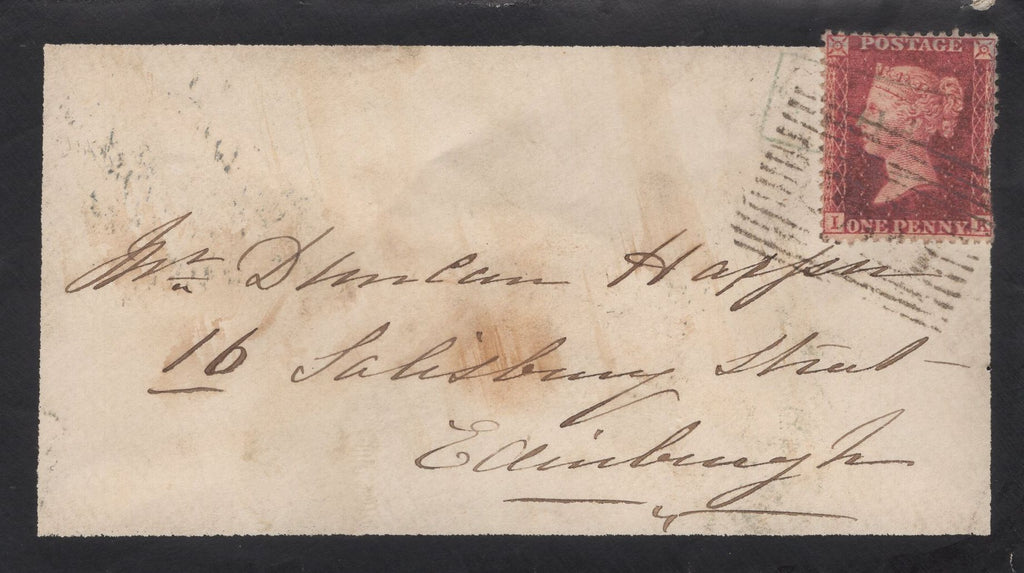 POSTAGE
L ONE PENNY
Mr. Duncan
16 Salisbury Street
Edinburgh